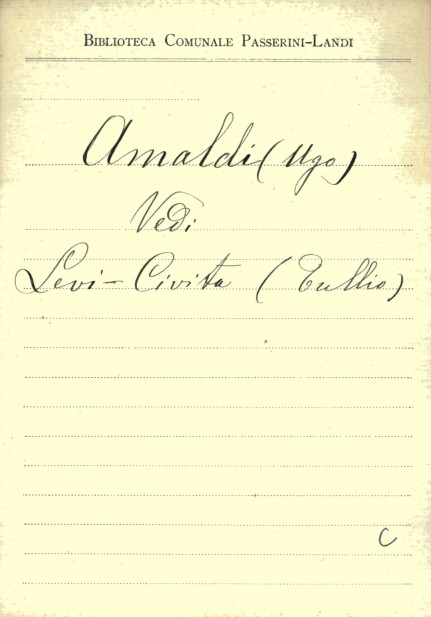 Biblioteca Comunale Passerini-Landi
Amaldi (Ugo)
Vedi
Levi-Civita (Tullio)
C